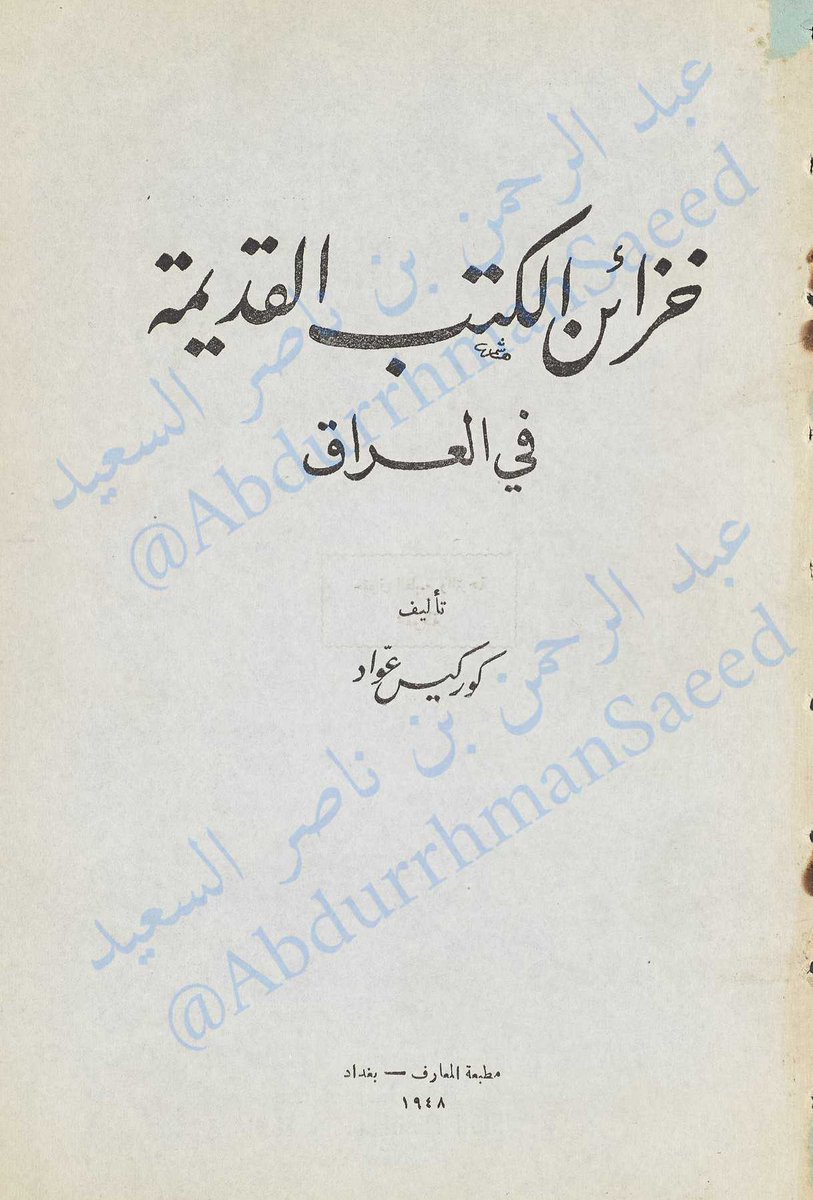 خزائن الكتب القديمة
في العراق
تأليف
كوركيس عوّاد
مطبعة المعارف — بغداد
١٩٤٨
عبد الرحمن بن ناصر السعيد
@AbdurrhmanSaeed
عبد الرحمن بن ناصر السعيد
@AbdurrhmanSaeed